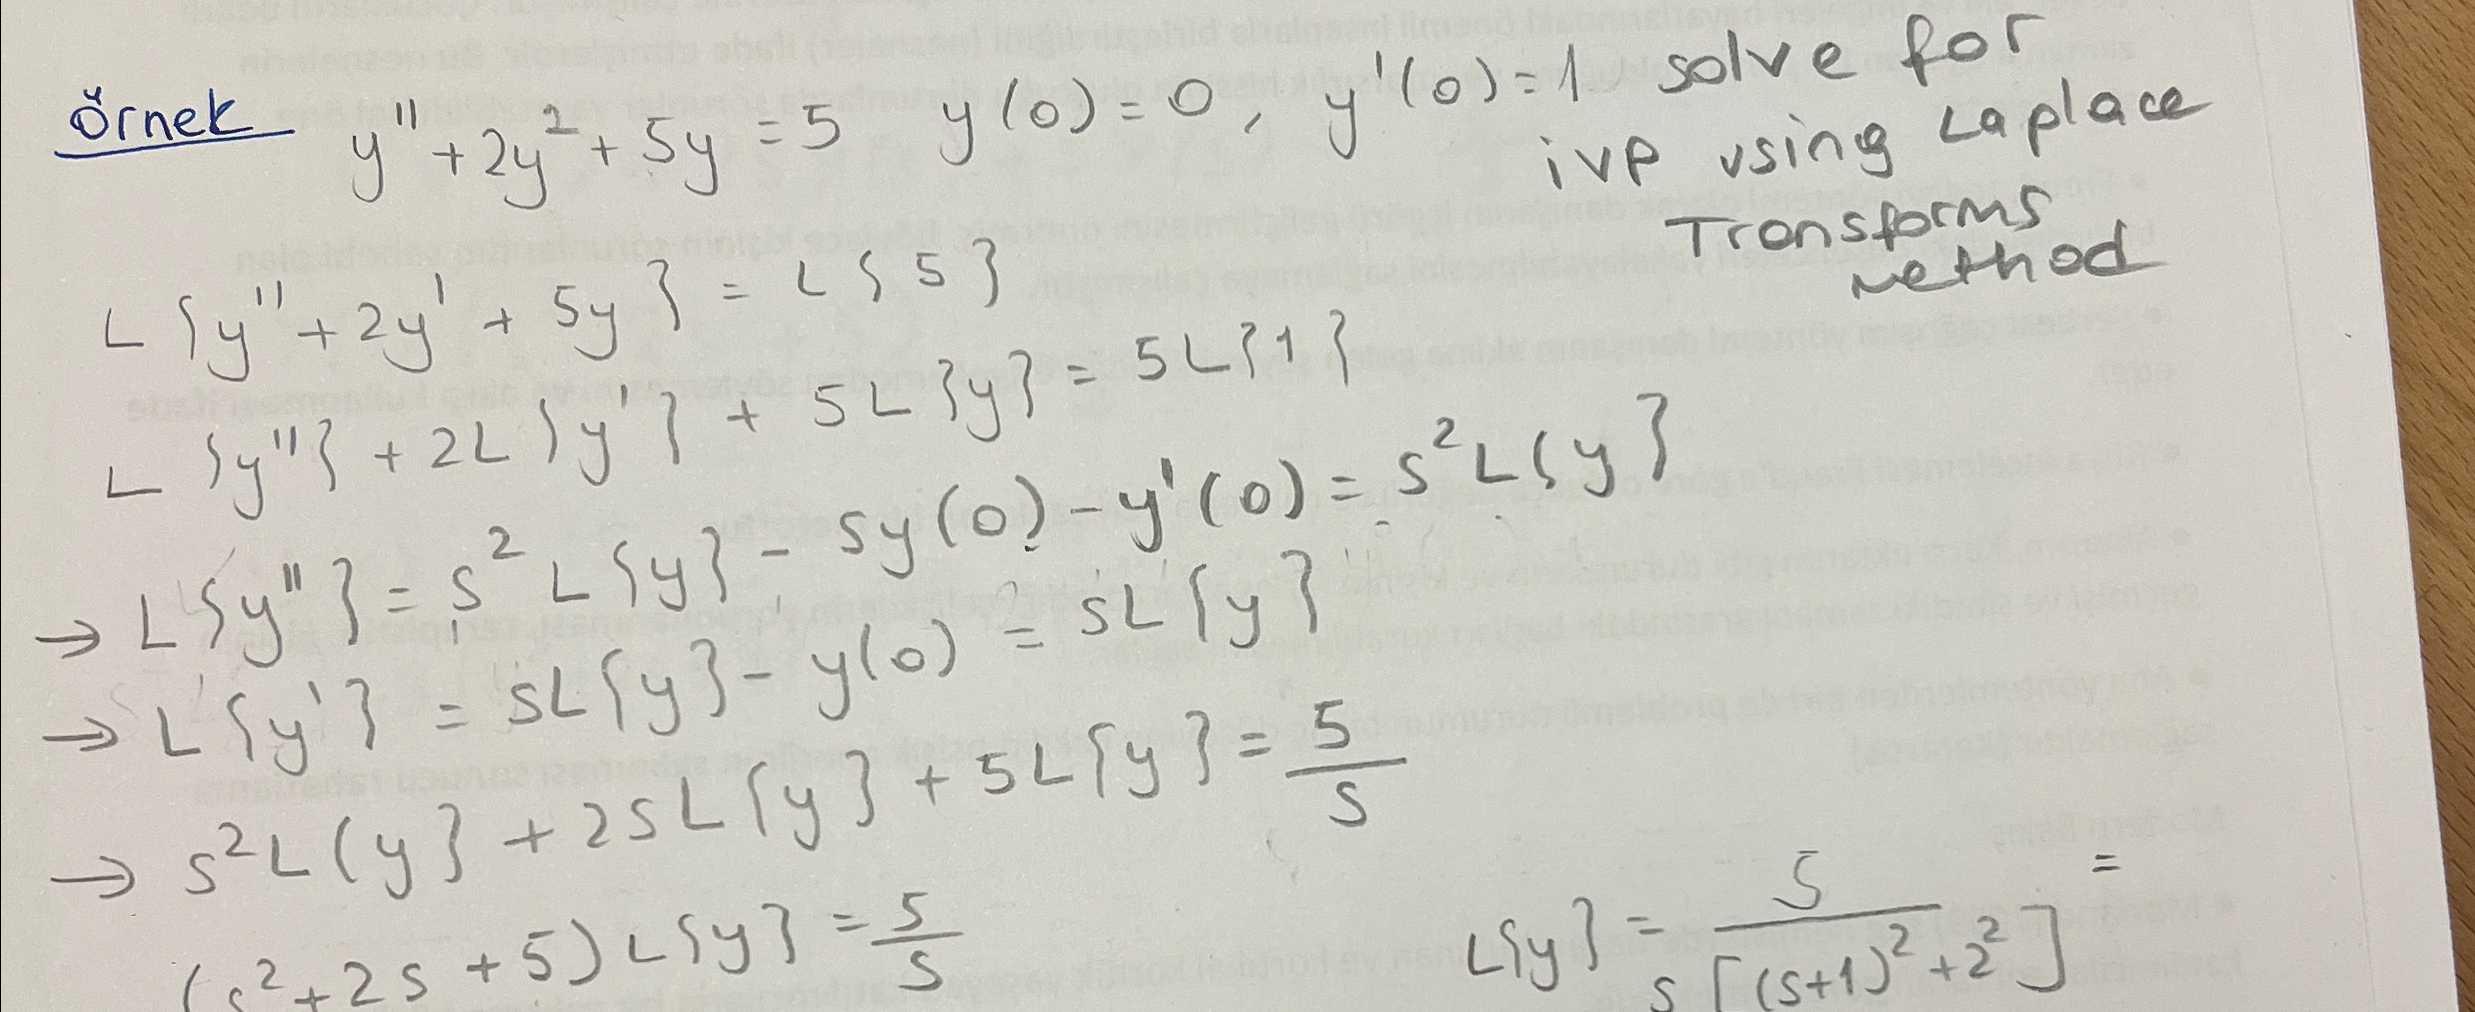 Örnek y'' + 2y² + 5y = 5 y(0) = 0, y'(0) = 1 solve for
ivp using Laplace
Transforms
method
L{y'' + 2y' + 5y} = L{5}
L{y''} + 2L{y'} + 5L{y} = 5L{1}
→ L{y''} = s²L{y} - sy(0) - y'(0) = s²L{y}
→ L{y'} = sL{y} - y(0) = sL{y}
→ s²L{y} + 2sL{y} + 5L{y} = 5/s
(s² + 2s + 5) L{y} = 5/s
L{y} = 5/s[(s+1)² + 2²] =